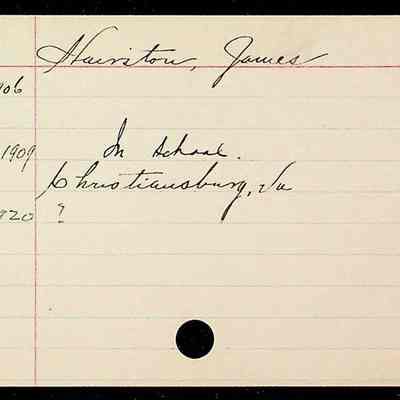 Hairston, James
906
1909 In school.
Christiansburg, Va
920 ?